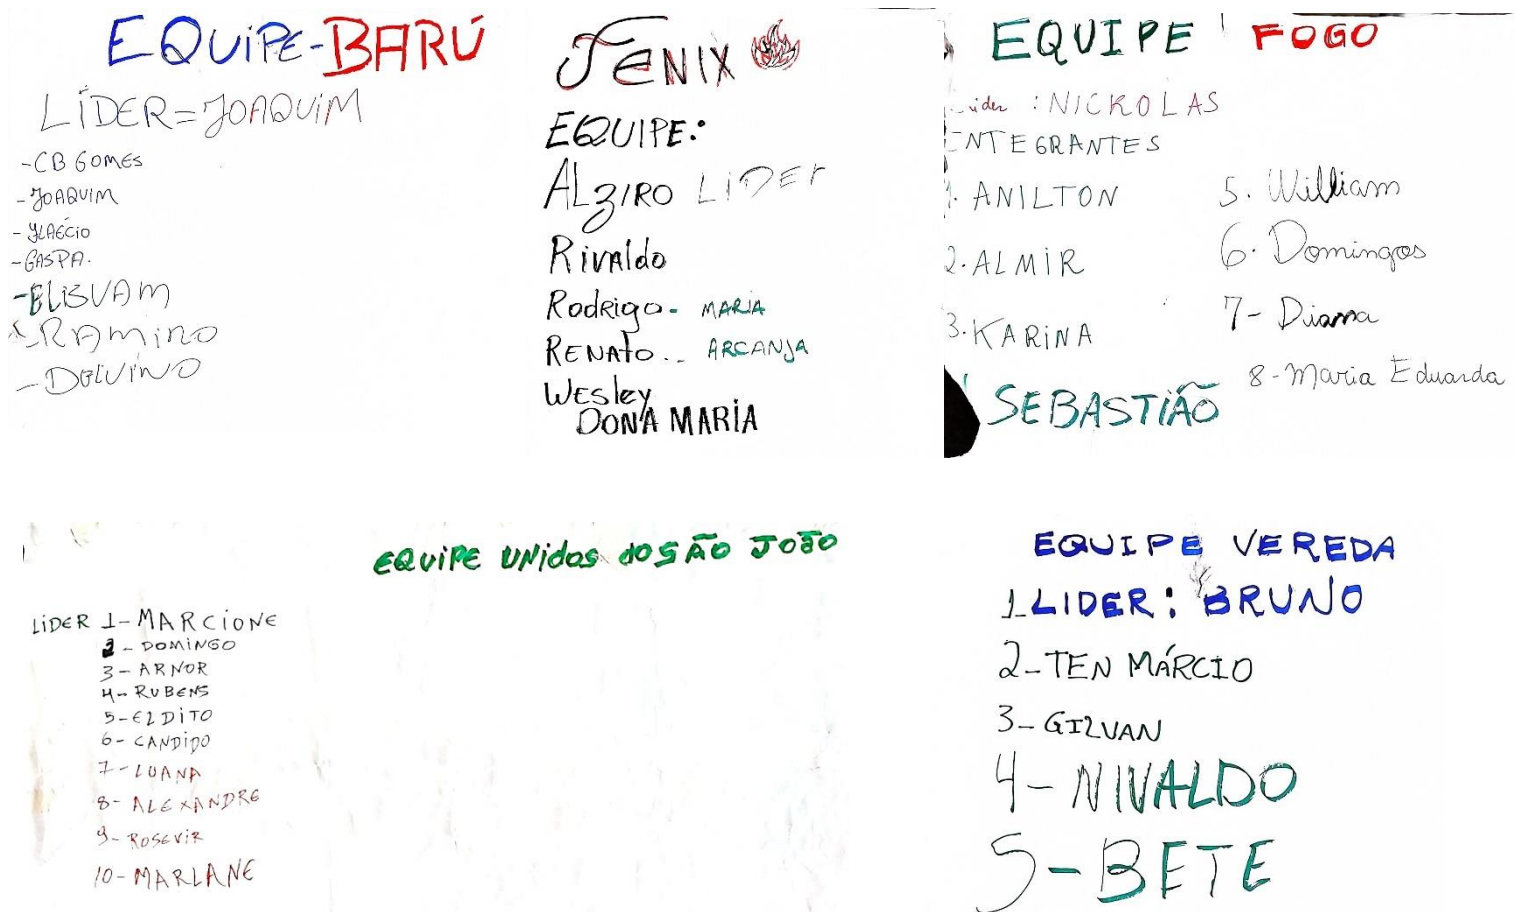 EQUIPE-BARÚ
LÍDER=JOAQUIM
-CB GOMES
-JOAQUIM
-GASPA.
-ELISVAM
-RAMIRO
-DELVINO
FENIX
EQUIPE:
ALZIRO LIDER
Rivaldo
Rodrigo- MARIA
RENATO.- ARCANJA
Wesley
DONA MARIA
EQUIPE FOGO
Lider : NICKOLAS
INTEGRANTES
1. ANILTON
2. ALMIR
3. KARINA
SEBASTIÃO
5. William
6. Domingos
7- Diana
8-Maria Eduarda
EQUIPE UNidos do SÃO JOÃO
LIDER 1-MARCIONE
2-DOMINGO
3-ARNOR
4-RUBENS
5-ELDITO
6-CANDIDO
7-LUANA
8-ALEXANDRE
9-ROSEVIR
10-MARLANE
EQUIPE VEREDA
1 LIDER: BRUNO
2-TEN MÁRCIO
3-GILVAN
4-NIVALDO
5-BETE